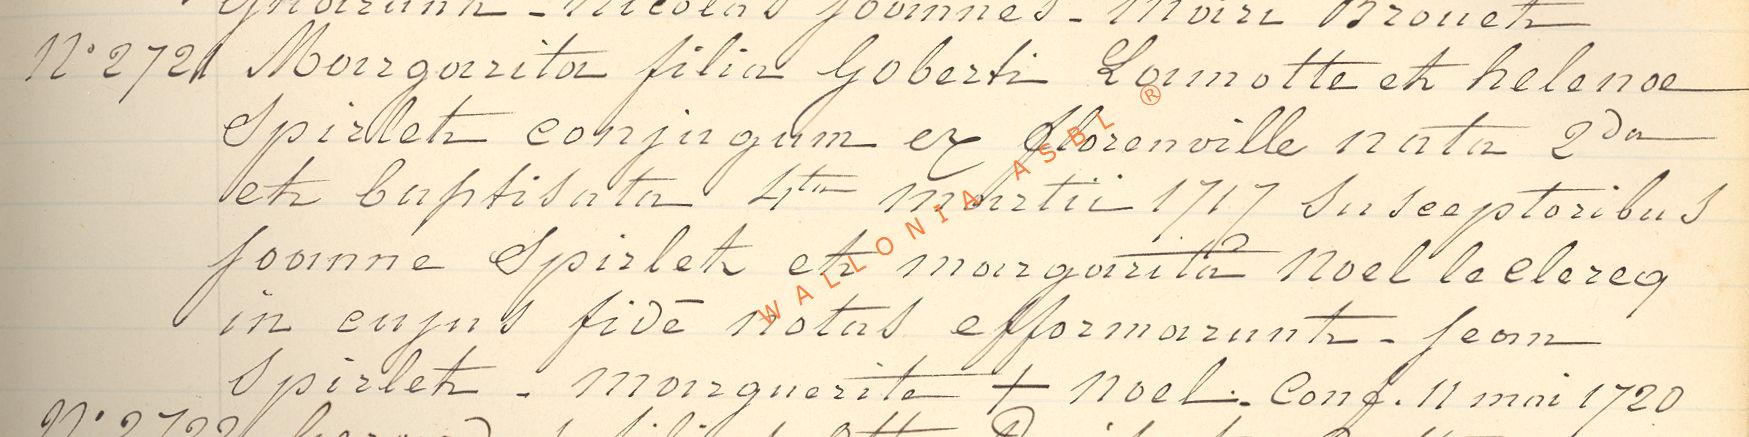 Nicolas Joannes - Mari Brouet
N° 2721 Margarita filia Goberti Lamotte et helenae
Spirlet conjugum ex florenville nata 2da
et baptisata 4ta martii 1717 Susceptoribus
Joanne Spirlet et margarita Noel le Clercq
in cujus fidē notas efformarunt - Jean
Spirlet - Marguerite + Noel. - Conf. 11 mai 1720
N° 2722
WALLONIA ASBL ®